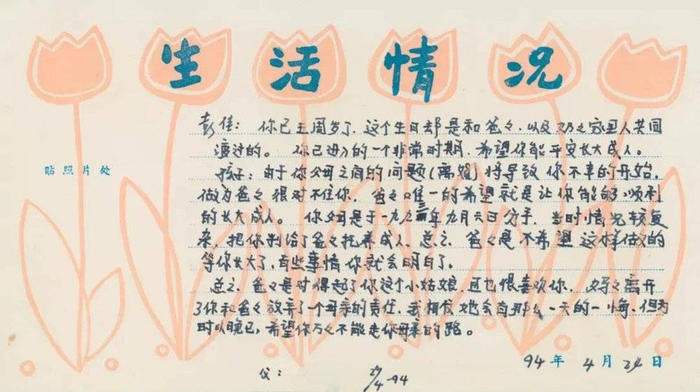 生活情况
彭佳：你已五周岁了，这个生日却是和爸々，以及奶々家里人共同
渡过的。你已进入的一个非常时期，希望你能平安长大成人。
贴照片处
孩子：由于你父母之间的问题(离婚)将导致你不幸的开始，
做为爸々很对不住你，爸々唯一的希望就是让你能够顺利
的长大成人。你父母是于一九九三年九月六日分手，当时情况较复
杂，把你判给了爸々托养成人，总之，爸々是不希望这样做的
等你长大了，有些事情你就会明白了。
总之，爸々是对得起了你这个小姑娘，且也很喜欢你，妈々离开
了你和爸々放弃了一个母亲的责任，我相信她会有那么一天的一悔，但为
时以晚已，希望你万々不能走你母亲的路。
94年4月24日
父：
94